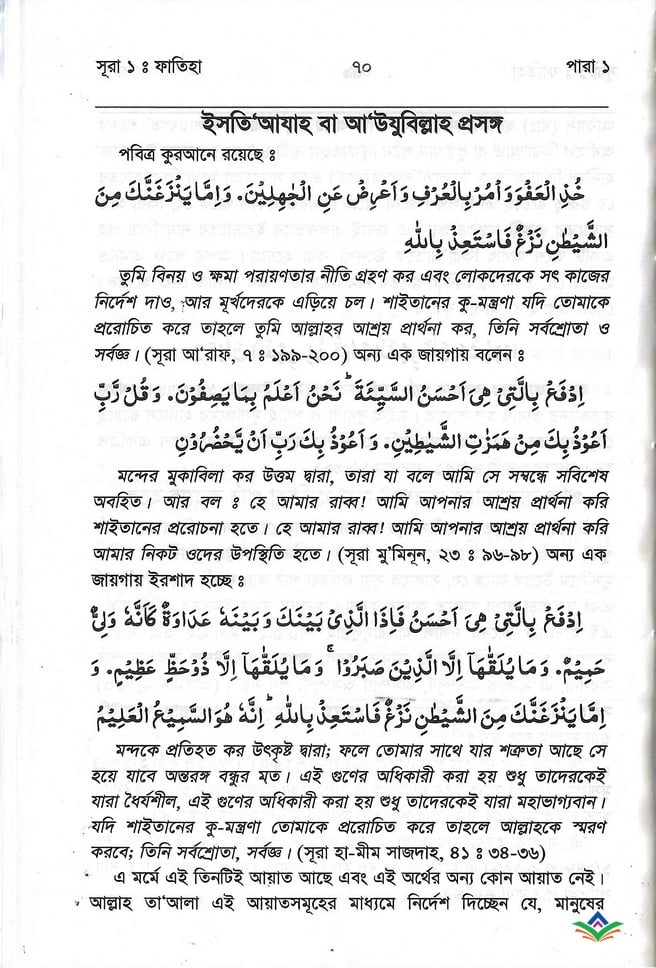 সূরা ১ ঃ ফাতিহা ৭০ পারা ১
ইসতি‘আযাহ বা আ‘উযুবিল্লাহ প্রসঙ্গ
পবিত্র কুরআনে রয়েছে ঃ
خُذِ الْعَفْوَ وَأْمُرْ بِالْعُرْفِ وَاَعْرِضْ عَنِ الْجٰهِلِيْنَ. وَاِمَّا يَنْزَغَنَّكَ مِنَ
الشَّيْطٰنِ نَزْغٌ فَاسْتَعِذْ بِاللهِ
তুমি বিনয় ও ক্ষমা পরায়ণতার নীতি গ্রহণ কর এবং লোকদেরকে সৎ কাজের
নির্দেশ দাও, আর মূর্খদেরকে এড়িয়ে চল। শাইতানের কু-মন্ত্রণা যদি তোমাকে
প্ররোচিত করে তাহলে তুমি আল্লাহর আশ্রয় প্রার্থনা কর, তিনি সর্বশ্রোতা ও
সর্বজ্ঞ। (সূরা আ‘রাফ, ৭ ঃ ১৯৯-২০০) অন্য এক জায়গায় বলেন ঃ
اِدْفَعْ بِالَّتِيْ هِىَ اَحْسَنُ السَّيِّئَةَ ۚ نَحْنُ اَعْلَمُ بِمَا يَصِفُوْنَ. وَ قُلْ رَّبِّ
اَعُوْذُ بِكَ مِنْ هَمَزٰتِ الشَّيٰطِيْنِ. وَ اَعُوْذُ بِكَ رَبِّ اَنْ يَّحْضُرُوْنِ
মন্দের মুকাবিলা কর উত্তম দ্বারা, তারা যা বলে আমি সে সম্বন্ধে সবিশেষ
অবহিত। আর বল ঃ হে আমার রাব্ব! আমি আপনার আশ্রয় প্রার্থনা করি
শাইতানের প্ররোচনা হতে। হে আমার রাব্ব! আমি আপনার আশ্রয় প্রার্থনা করি
আমার নিকট ওদের উপস্থিতি হতে। (সূরা মু’মিনূন, ২৩ ঃ ৯৬-৯৮) অন্য এক
জায়গায় ইরশাদ হচ্ছে ঃ
اِدْفَعْ بِالَّتِيْ هِىَ اَحْسَنُ فَاِذَا الَّذِىْ بَيْنَكَ وَ بَيْنَهٗ عَدَاوَةٌ كَاَنَّهٗ وَلِىٌّ
حَمِيْمٌ. وَ مَا يُلَقّٰهَآ اِلَّا الَّذِيْنَ صَبَرُوْا ۚ وَ مَا يُلَقّٰهَآ اِلَّا ذُوْ حَظٍّ عَظِيْمٍ. وَ
اِمَّا يَنْزَغَنَّكَ مِنَ الشَّيْطٰنِ نَزْغٌ فَاسْتَعِذْ بِاللهِ ؕ اِنَّهٗ هُوَ السَّمِيْعُ الْعَلِيْمُ
মন্দকে প্রতিহত কর উৎকৃষ্ট দ্বারা; ফলে তোমার সাথে যার শত্রুতা আছে সে
হয়ে যাবে অন্তরঙ্গ বন্ধুর মত। এই গুণের অধিকারী করা হয় শুধু তাদেরকেই
যারা ধৈর্যশীল, এই গুণের অধিকারী করা হয় শুধু তাদেরকেই যারা মহাভাগ্যবান।
যদি শাইতানের কু-মন্ত্রণা তোমাকে প্ররোচিত করে তাহলে আল্লাহকে স্মরণ
করবে; তিনি সর্বশ্রোতা, সর্বজ্ঞ। (সূরা হা-মীম সাজদাহ, ৪১ ঃ ৩৪-৩৬)
এ মর্মে এই তিনটিই আয়াত আছে এবং এই অর্থের অন্য কোন আয়াত নেই।
আল্লাহ তা‘আলা এই আয়াতসমূহের মাধ্যমে নির্দেশ দিচ্ছেন যে, মানুষের